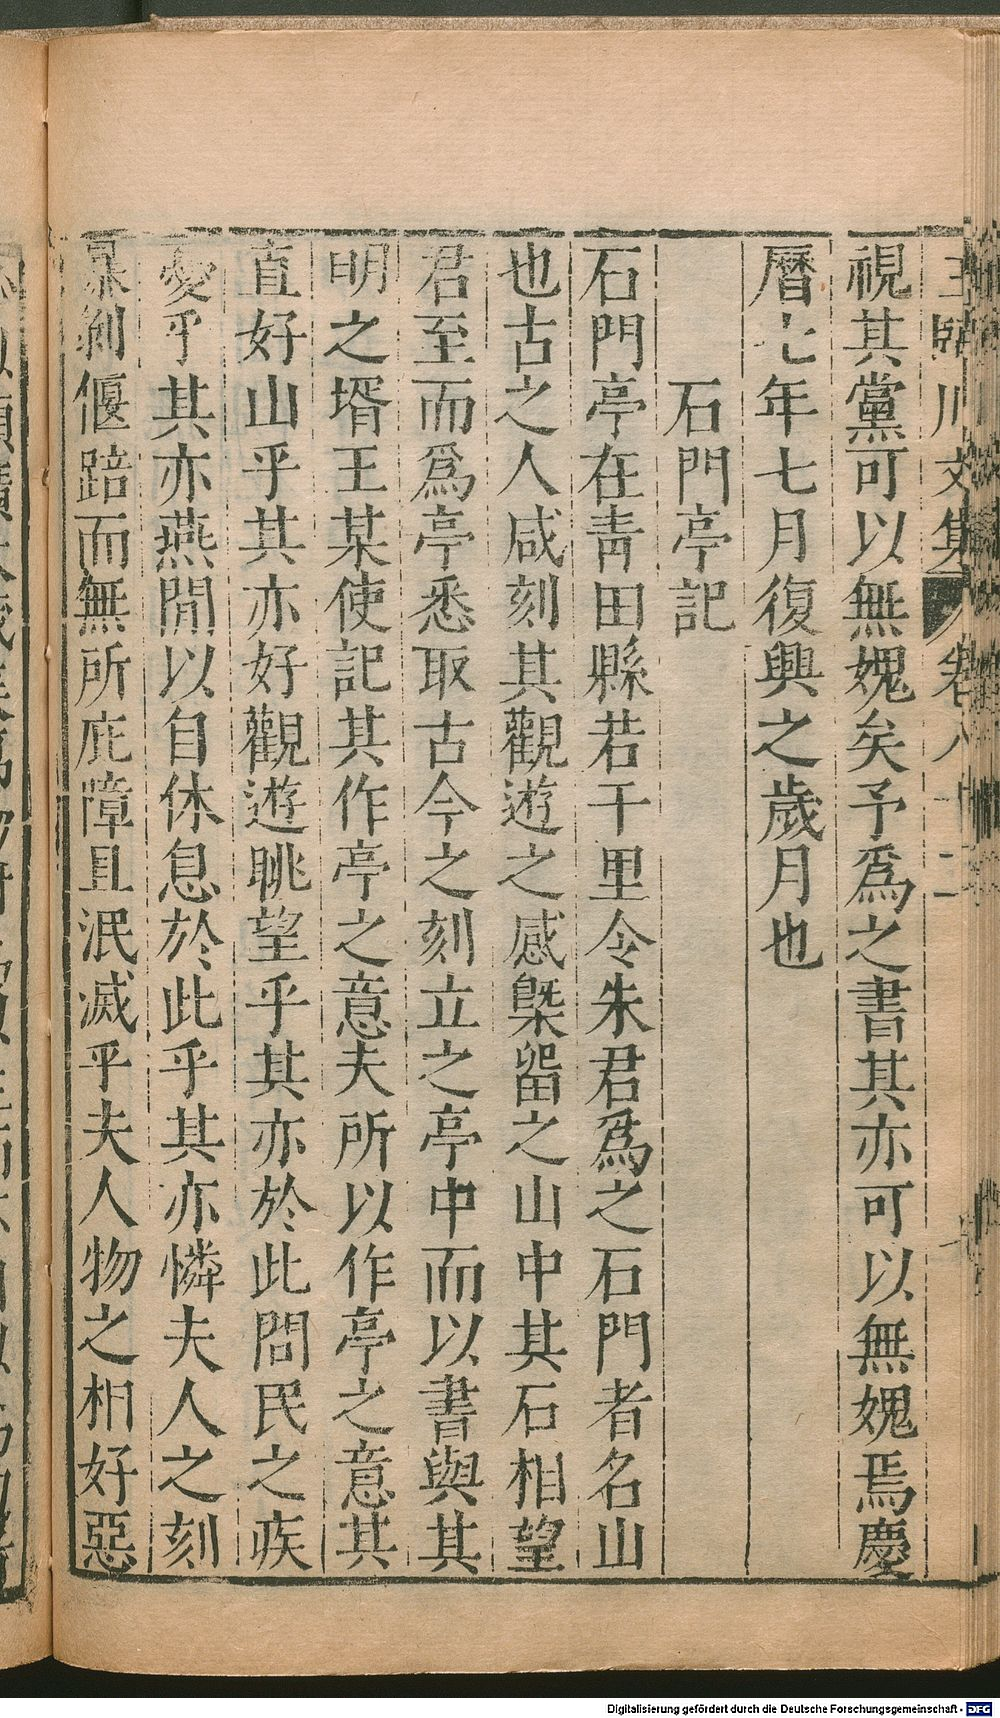 王臨川文集 卷八十三
視其黨可以無媿矣予爲之書其亦可以無媿焉慶
曆七年七月復興之歲月也
石門亭記
石門亭在靑田縣若干里令朱君爲之石門者名山
也古之人咸刻其觀遊之感槩留之山中其石相望
君至而爲亭悉取古今之刻立之亭中而以書與其
明之壻王某使記其作亭之意夫所以作亭之意其
直好山乎其亦好觀遊眺望乎其亦於此問民之疾
憂乎其亦燕閒以自休息於此乎其亦憐夫人之刻
暴剝偃踣而無所庇障且泯滅乎夫人物之相好惡
Digitalisierung gefördert durch die Deutsche Forschungsgemeinschaft - DFG